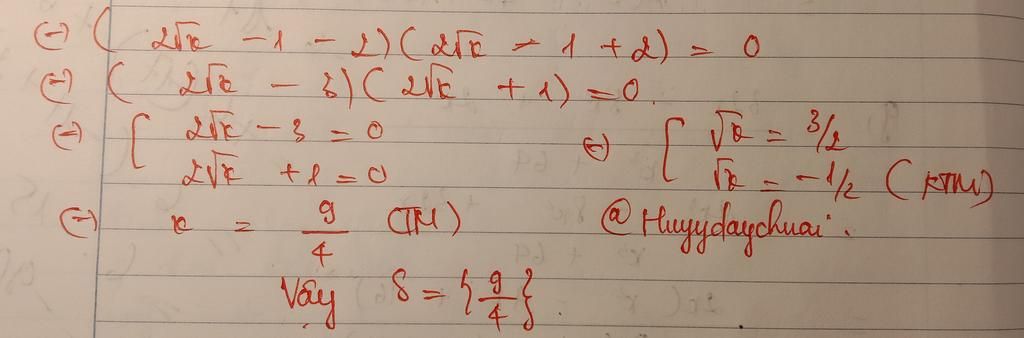 ⇔ ( 2√x - 1 - 2)( 2√x - 1 + 2) = 0
⇔ ( 2√x - 3)( 2√x + 1) = 0.
⇔ [ 2√x - 3 = 0 ⇔ [ √x = 3/2
2√x + 1 = 0 √x = -1/2 (KTM)
⇔ x = 9/4 (TM) @Huyydaychuai.
Vậy S = {9/4}.